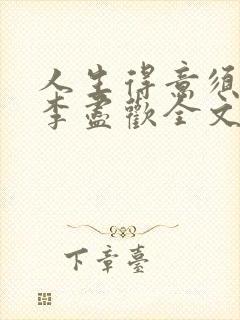 人生得意须
李盡歡全文
下章臺